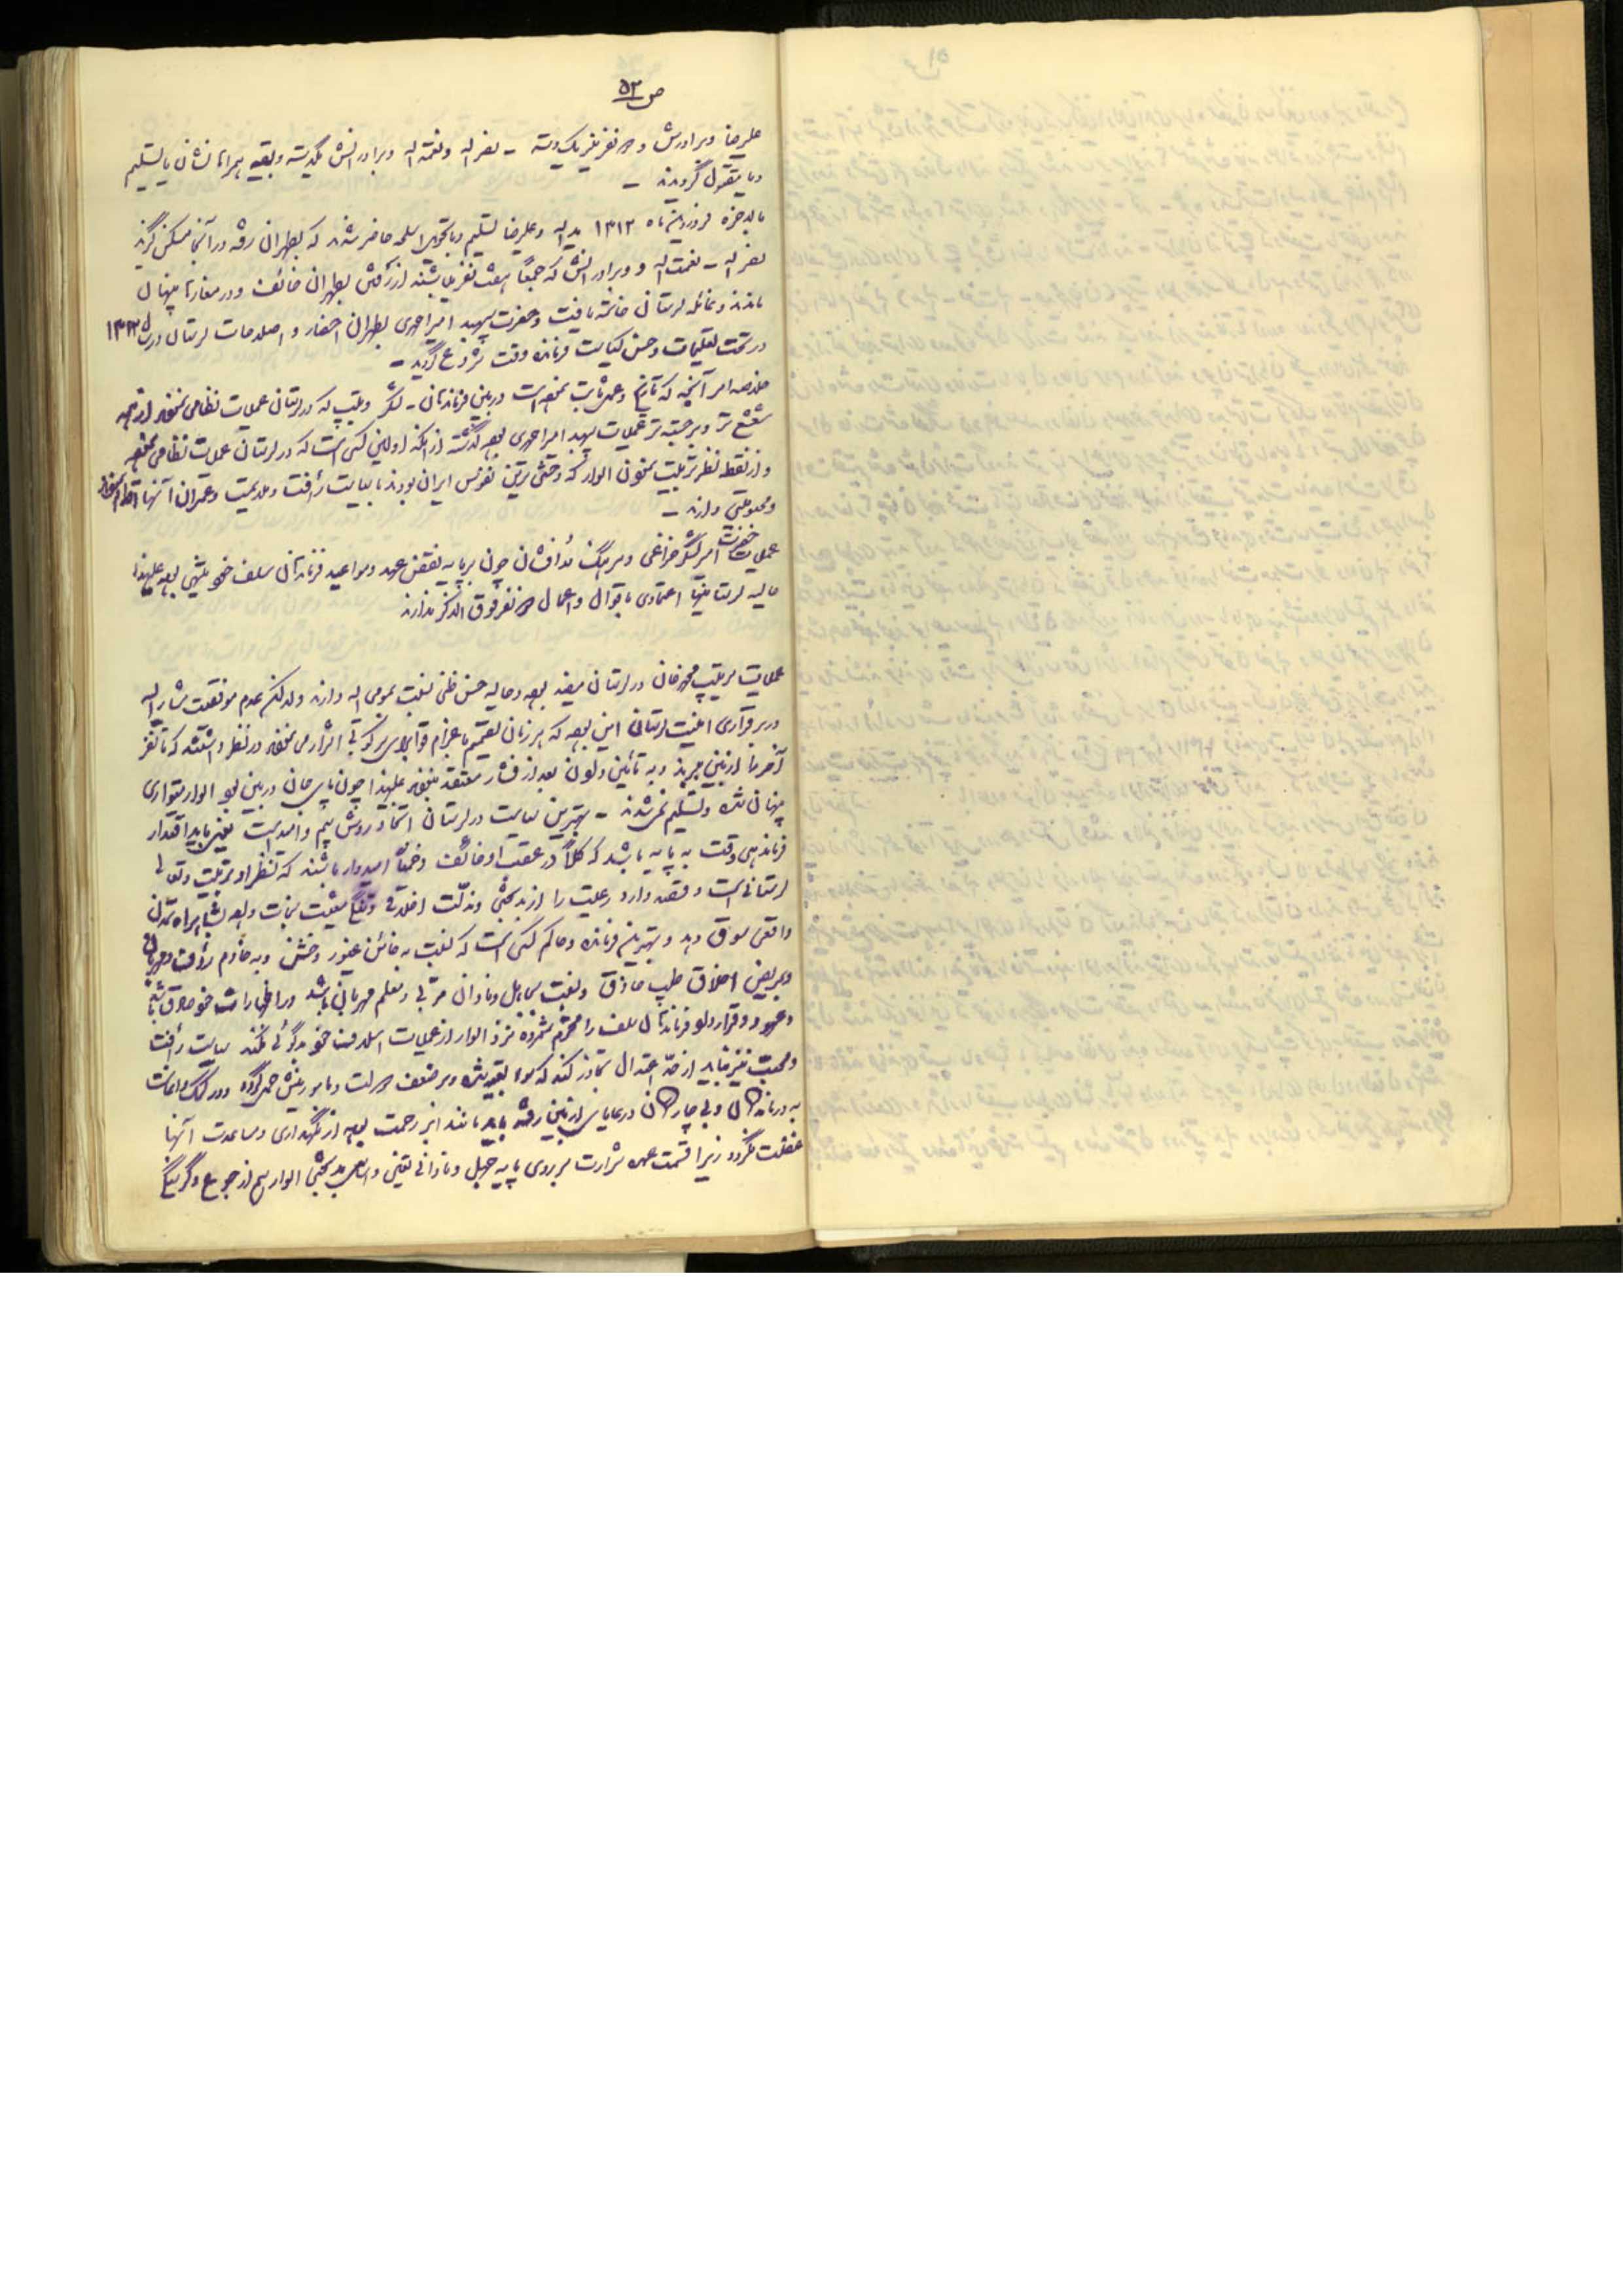 ص ۵۳
علیرضا و برادرش و ۳ نفر نیز یک دسته - نصراله و نعمت‌اله و برادرانش یکدسته و بقیه همراهانشان یا تسلیم
و یا مقتول گردیدند -
بالاخره فروردین ماه ۱۳۱۲ یداله و علیرضا تسلیم و با تحویل اسلحه حاضر شدند که بطهران رفته در آنجا مسکن گزیند
نصراله - نعمت‌اله و برادرانش که جمعاً هفت نفر میباشند از رفتن بطهران خائف و در مغاره‌ها پنهان
ماندند و غائله لرستان خاتمه یافت و حضرت سپهبد امیراحمدی بطهران احضار و اصلاحات لرستان در سال ۱۳۱۲
در تحت تعلیمات و حسن کفایت فرمانده وقت شروع گردید -
خلاصه امر آنچه که تاریخ و عمل ثابت نموده است در بین فرماندهان - لشگر و تیپ که در لرستان عملیات نظامی نموده‌اند از همه
مشعشع‌تر و برجسته‌تر عملیات سپهبد امیراحمدی بوده گذشته از اینکه اولین کسی است که در لرستان عملیات نظامی نموده
و از نقطه نظر تربیت نمودن الوار که وحشی‌ترین نفوس ایران بودند با نهایت رأفت و ملایمت و عمران آنها
و محبوبیتی دارند -
عملیات حضرت امیرلشگر خزاعی و سرهنگ رزم‌آرا چون بر پایه نقض عهد و مواعید فرماندهان سلف خود مبتنی بوده علیهذا
حالیه لرستانیها اعتمادی باقوال و اعمال ۲ نفر فوق الذکر ندارند
عملیات سرتیپ محمدخان در لرستان مفید بوده و حالیه حسن ظنی نسبت بمومی الیه دارند ولی علت عدم موفقیت مشارالیه
در برقراری امنیت لرستان این بوده که هر زمان تصمیم باعزام قوا برای سرکوبی اشرار می‌نمودند در نظر داشتند که تا نفر
آخر را از بین ببرند و به تأمین دادن بعد از فشار معتقد نبودند علیهذا چون پای جان در بین بود الوار متواری
پنهان شده و تسلیم نمی‌شدند - بهترین سیاست در لرستان اتخاذ روش بیم و امید است یعنی باید اقتدار
فرماندهی وقت به پایه باشد که کلاً در عقب او خائف و ضمناً امیدوار باشند که منظر او تربیت و تعالی
لرستانی است و قصد دارد رعیت را از بدبختی و مذلت اخلاقی و تنگی معیشت نجات داده بشاهراه تمدن
واقعی سوق دهد و بهترین فرمانده و حاکم کسی است که نسبت به خائن غیور و خشن و به خادم رؤف و مهربان
و بمریض اخلاق طبیب حاذق و نسبت بجاهل و نادان مربی و معلم مهربان باشد در اظهارات خود صادق باشد
و عهود و قرارداد فرماندهان سلف را محترم شمرده نزد الوار از عملیات اسلاف خود بدگوئی نکند سیاست رأفت
و محبت نیز نباید از حد اعتدال تجاوز کند که سوء تعبیر شده و بر ضعف دولت و مامورینش حمل گردد و در کمک و اعانت
به درماندگان و بی‌چارگان و رعایای از بین رفته باید مانند ابر رحمت بوده از نگهداری و مساعدت آنها
غفلت نگردد زیرا قسمت عمده شرارت بر روی پایه جهل و نادانی یقینی و اساس بدبختی الوار هم از جوع و گرسنگی